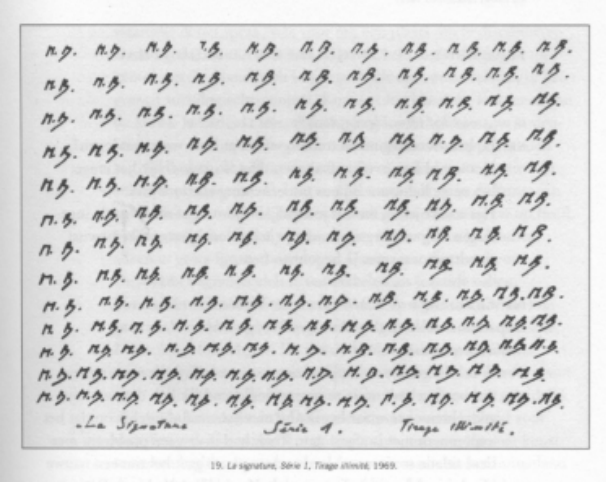 M.B. M.B. M.B. M.B. M.B. M.B. M.B. M.B. M.B. M.B. M.B.
M.B. M.B. M.B. M.B. M.B. M.B. M.B. M.B. M.B. M.B. M.B.
M.B. M.B. M.B. M.B. M.B. M.B. M.B. M.B. M.B. M.B. M.B.
M.B. M.B. M.B. M.B. M.B. M.B. M.B. M.B. M.B. M.B. M.B.
M.B. M.B. M.B. M.B. M.B. M.B. M.B. M.B. M.B. M.B. M.B.
M.B. M.B. M.B. M.B. M.B. M.B. M.B. M.B. M.B. M.B. M.B.
M.B. M.B. M.B. M.B. M.B. M.B. M.B. M.B. M.B. M.B. M.B.
M.B. M.B. M.B. M.B. M.B. M.B. M.B. M.B. M.B. M.B. M.B.
M.B. M.B. M.B. M.B. M.B. M.B. M.B. M.B. M.B. M.B. M.B. M.B.
M.B. M.B. M.B. M.B. M.B. M.B. M.B. M.B. M.B. M.B. M.B. M.B. M.B.
M.B. M.B. M.B. M.B. M.B. M.B. M.B. M.B. M.B. M.B. M.B. M.B. M.B.
M.B. M.B. M.B. M.B. M.B. M.B. M.B. M.B. M.B. M.B. M.B. M.B. M.B.
M.B. M.B. M.B. M.B. M.B. M.B. M.B. M.B. M.B. M.B. M.B. M.B. M.B. M.B.
La Signature Série 1. Tirage illimité.
19. La signature, Série 1, Tirage illimité, 1969.